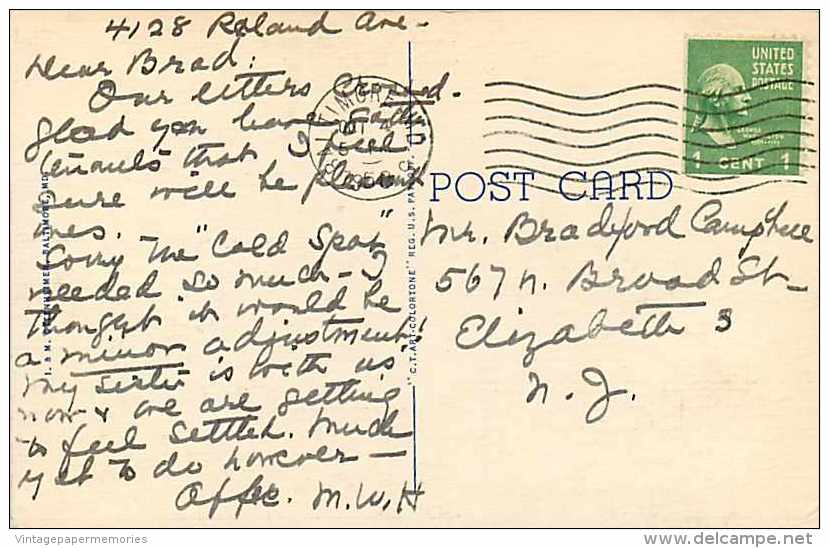 4128 Roland Ave.
Dear Brad:
Our letters crossed.
Glad you have
tenants that I feel
sure will be pleasant
ones.
Sorry the "Cold Spot"
needed so much - I
thought it would be
a minor adjustment!
My sister is with us
now & we are getting
to feel settled. Much
yet to do however —
Affec. M.W.H
BALTIMORE
OCT
1950
UNITED
STATES
POSTAGE
1 CENT 1
POST CARD
Mr. Bradford Campbell
567 N. Broad St.
Elizabeth 3
N. J.
I. & M. OTTENHEIMER, BALTIMORE, MD.
"C.T. ART-COLORTONE" REG. U.S. PAT. OFF.
Vintagepapermemories
delcampe.net